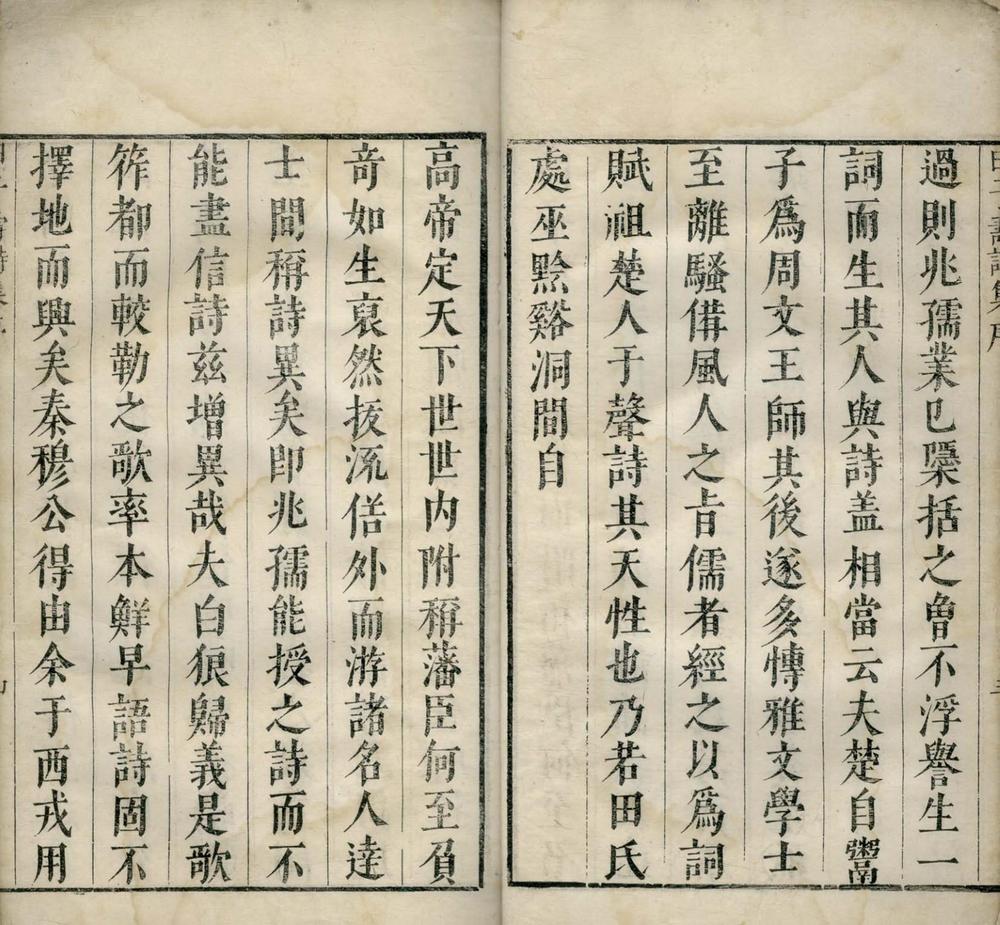 過則兆孺業已檃括之曾不浮譽生一
詞而生其人與詩盖相當云夫楚自鬻
子爲周文王師其後遂多愽雅文學士
至離騷備風人之㫖儒者經之以爲詞
賦祖楚人于聲詩其天性也乃若田氏
處巫黔谿洞間自
高帝定天下世世内附稱藩臣何至負
竒如生裒然㧞流俗外而游諸名人逹
士間稱詩異矣即兆孺能授之詩而不
能盡信詩兹增異哉夫白狼歸義是歌
筰都而較勒之歌率本鮮早語詩固不
擇地而興矣秦穆公得由余于西戎用